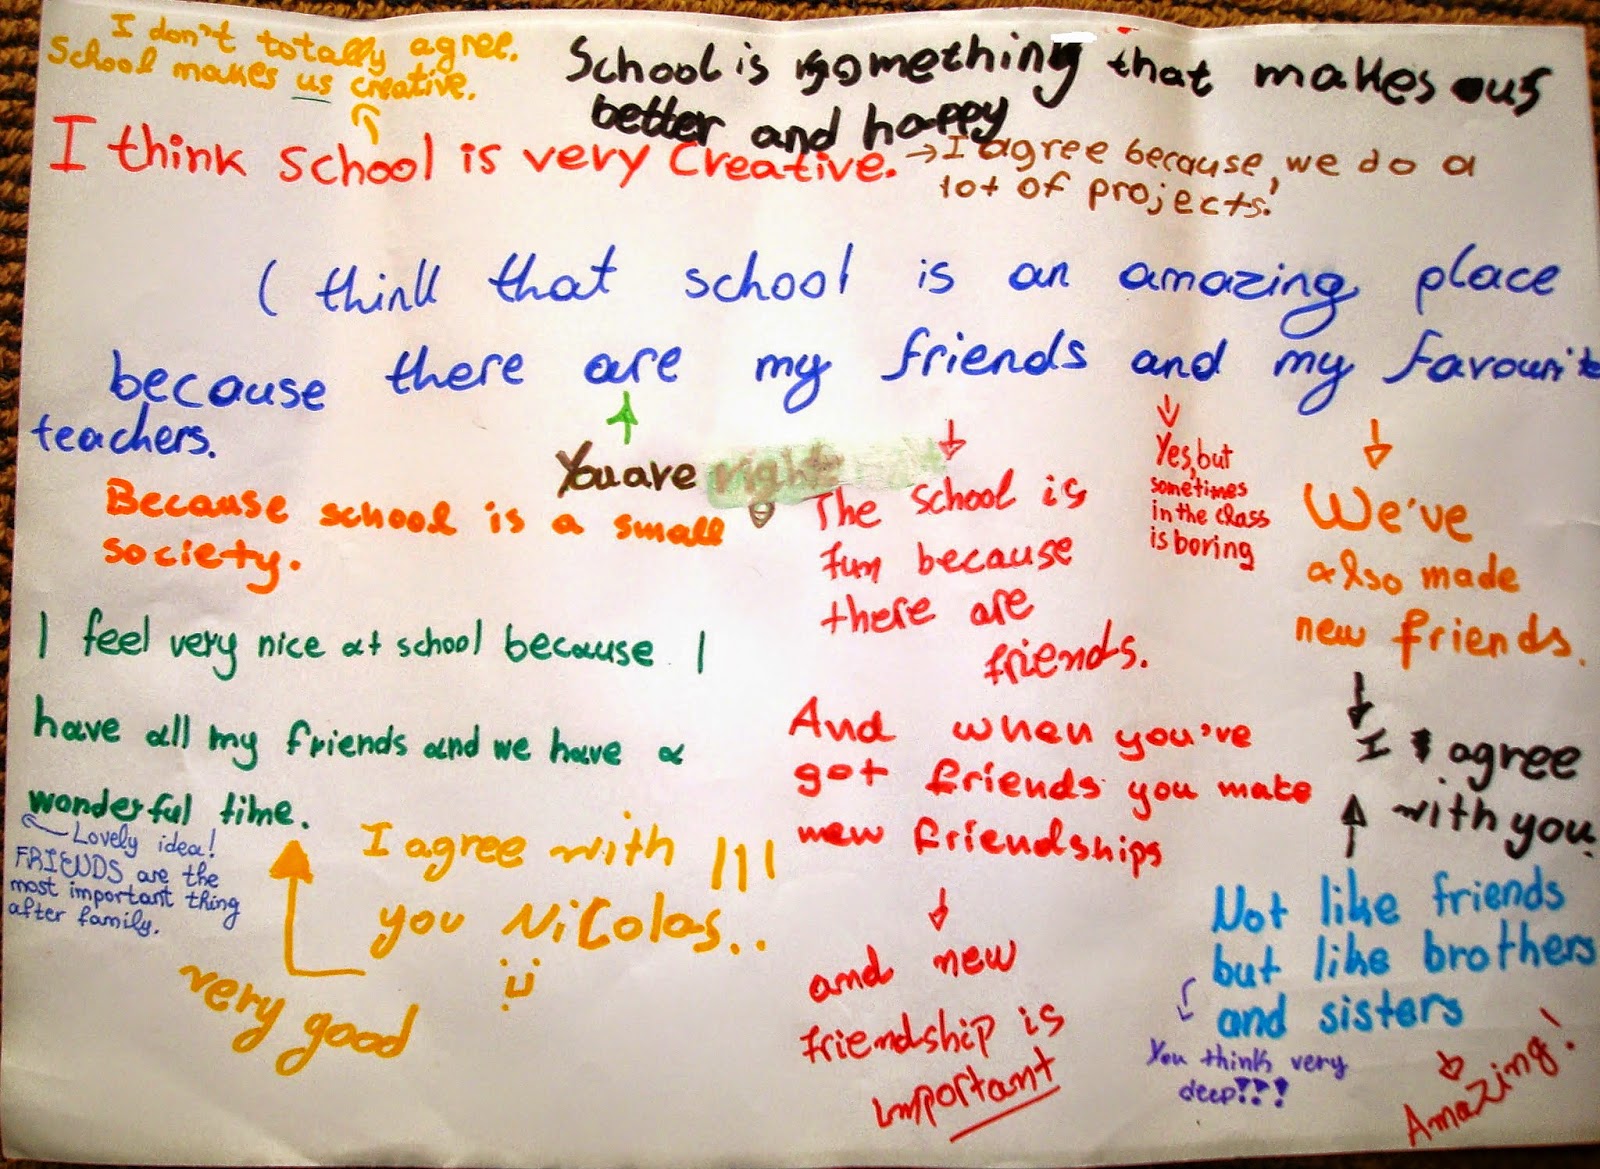 I don't totally agree.
School makes us creative.
School is something that makes us
better and happy
I think school is very creative.
I agree because, we do a
lot of projects!
I think that school is an amazing place
because there are my friends and my favourite
teachers.
You are right
Because school is a small
society.
The school is
fun because
there are
friends.
Yes, but
sometimes
in the class
is boring
We've
also made
new friends.
I agree
with you.
Not like friends
but like brothers
and sisters
You think very
deep!!!
Amazing!
And when you've
got friends you make
new friendships
and new
friendship is
important
I feel very nice at school because I
have all my friends and we have a
wonderful time.
Lovely idea!
FRIENDS are the
most important thing
after family.
very good
I agree with
you Nicolas..
!!!